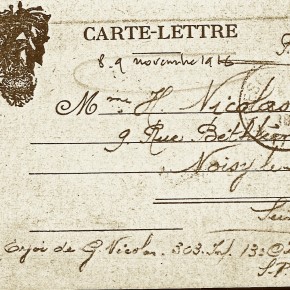 CARTE-LETTRE
8.9 novembre 1916
Mme H Nicolas
9. Rue
Noisy le
Envoi de G. Nicolas. 303. Inf. 13e
S.P.